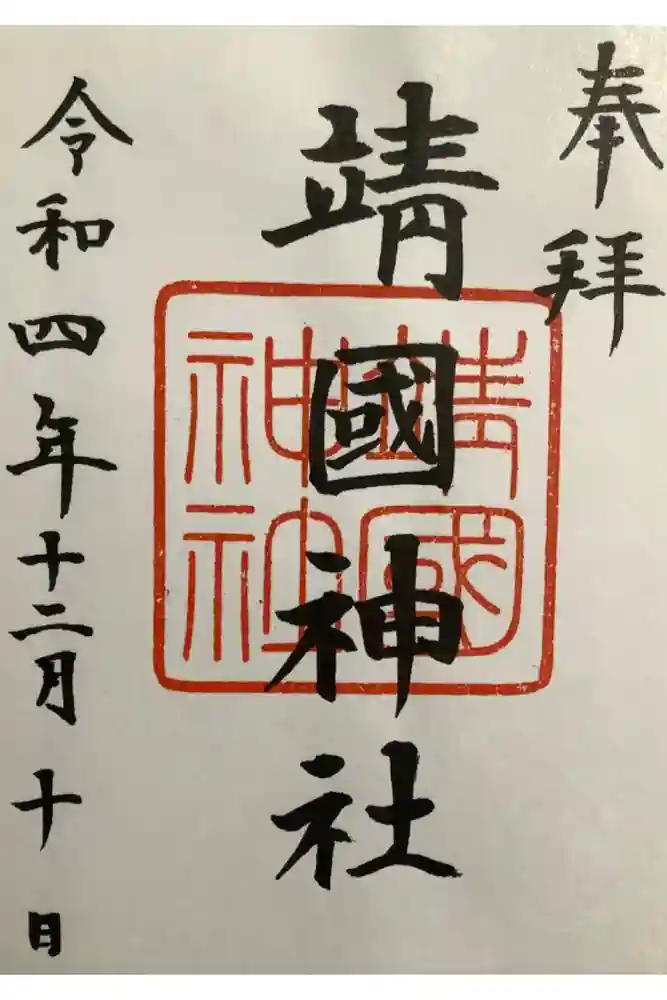 奉拝
靖國神社
靖國
神社
令和四年十二月十日